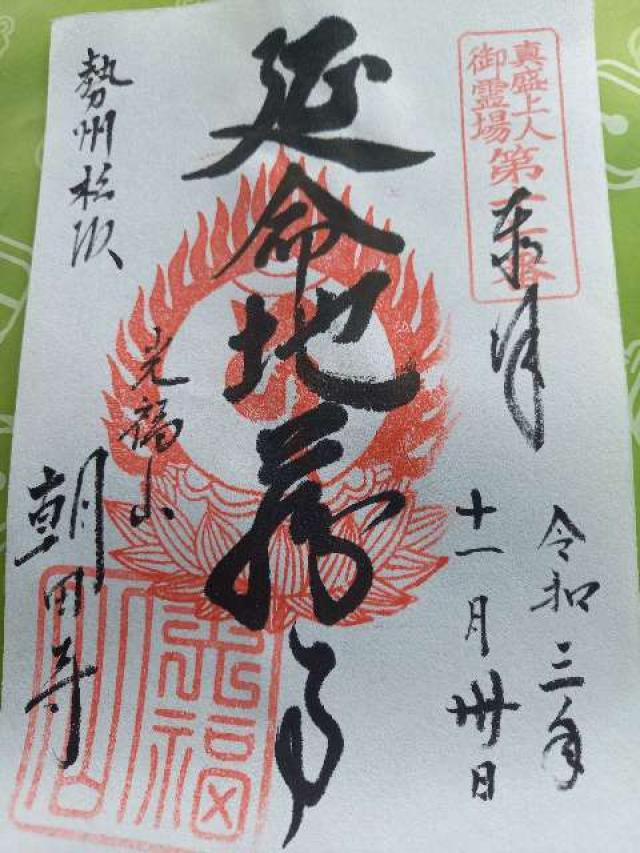 真盛上人
御霊場第十六番
奉拝
令和三年
十一月卅日
延命地蔵尊
勢州松阪
光福山
朝田寺
光福